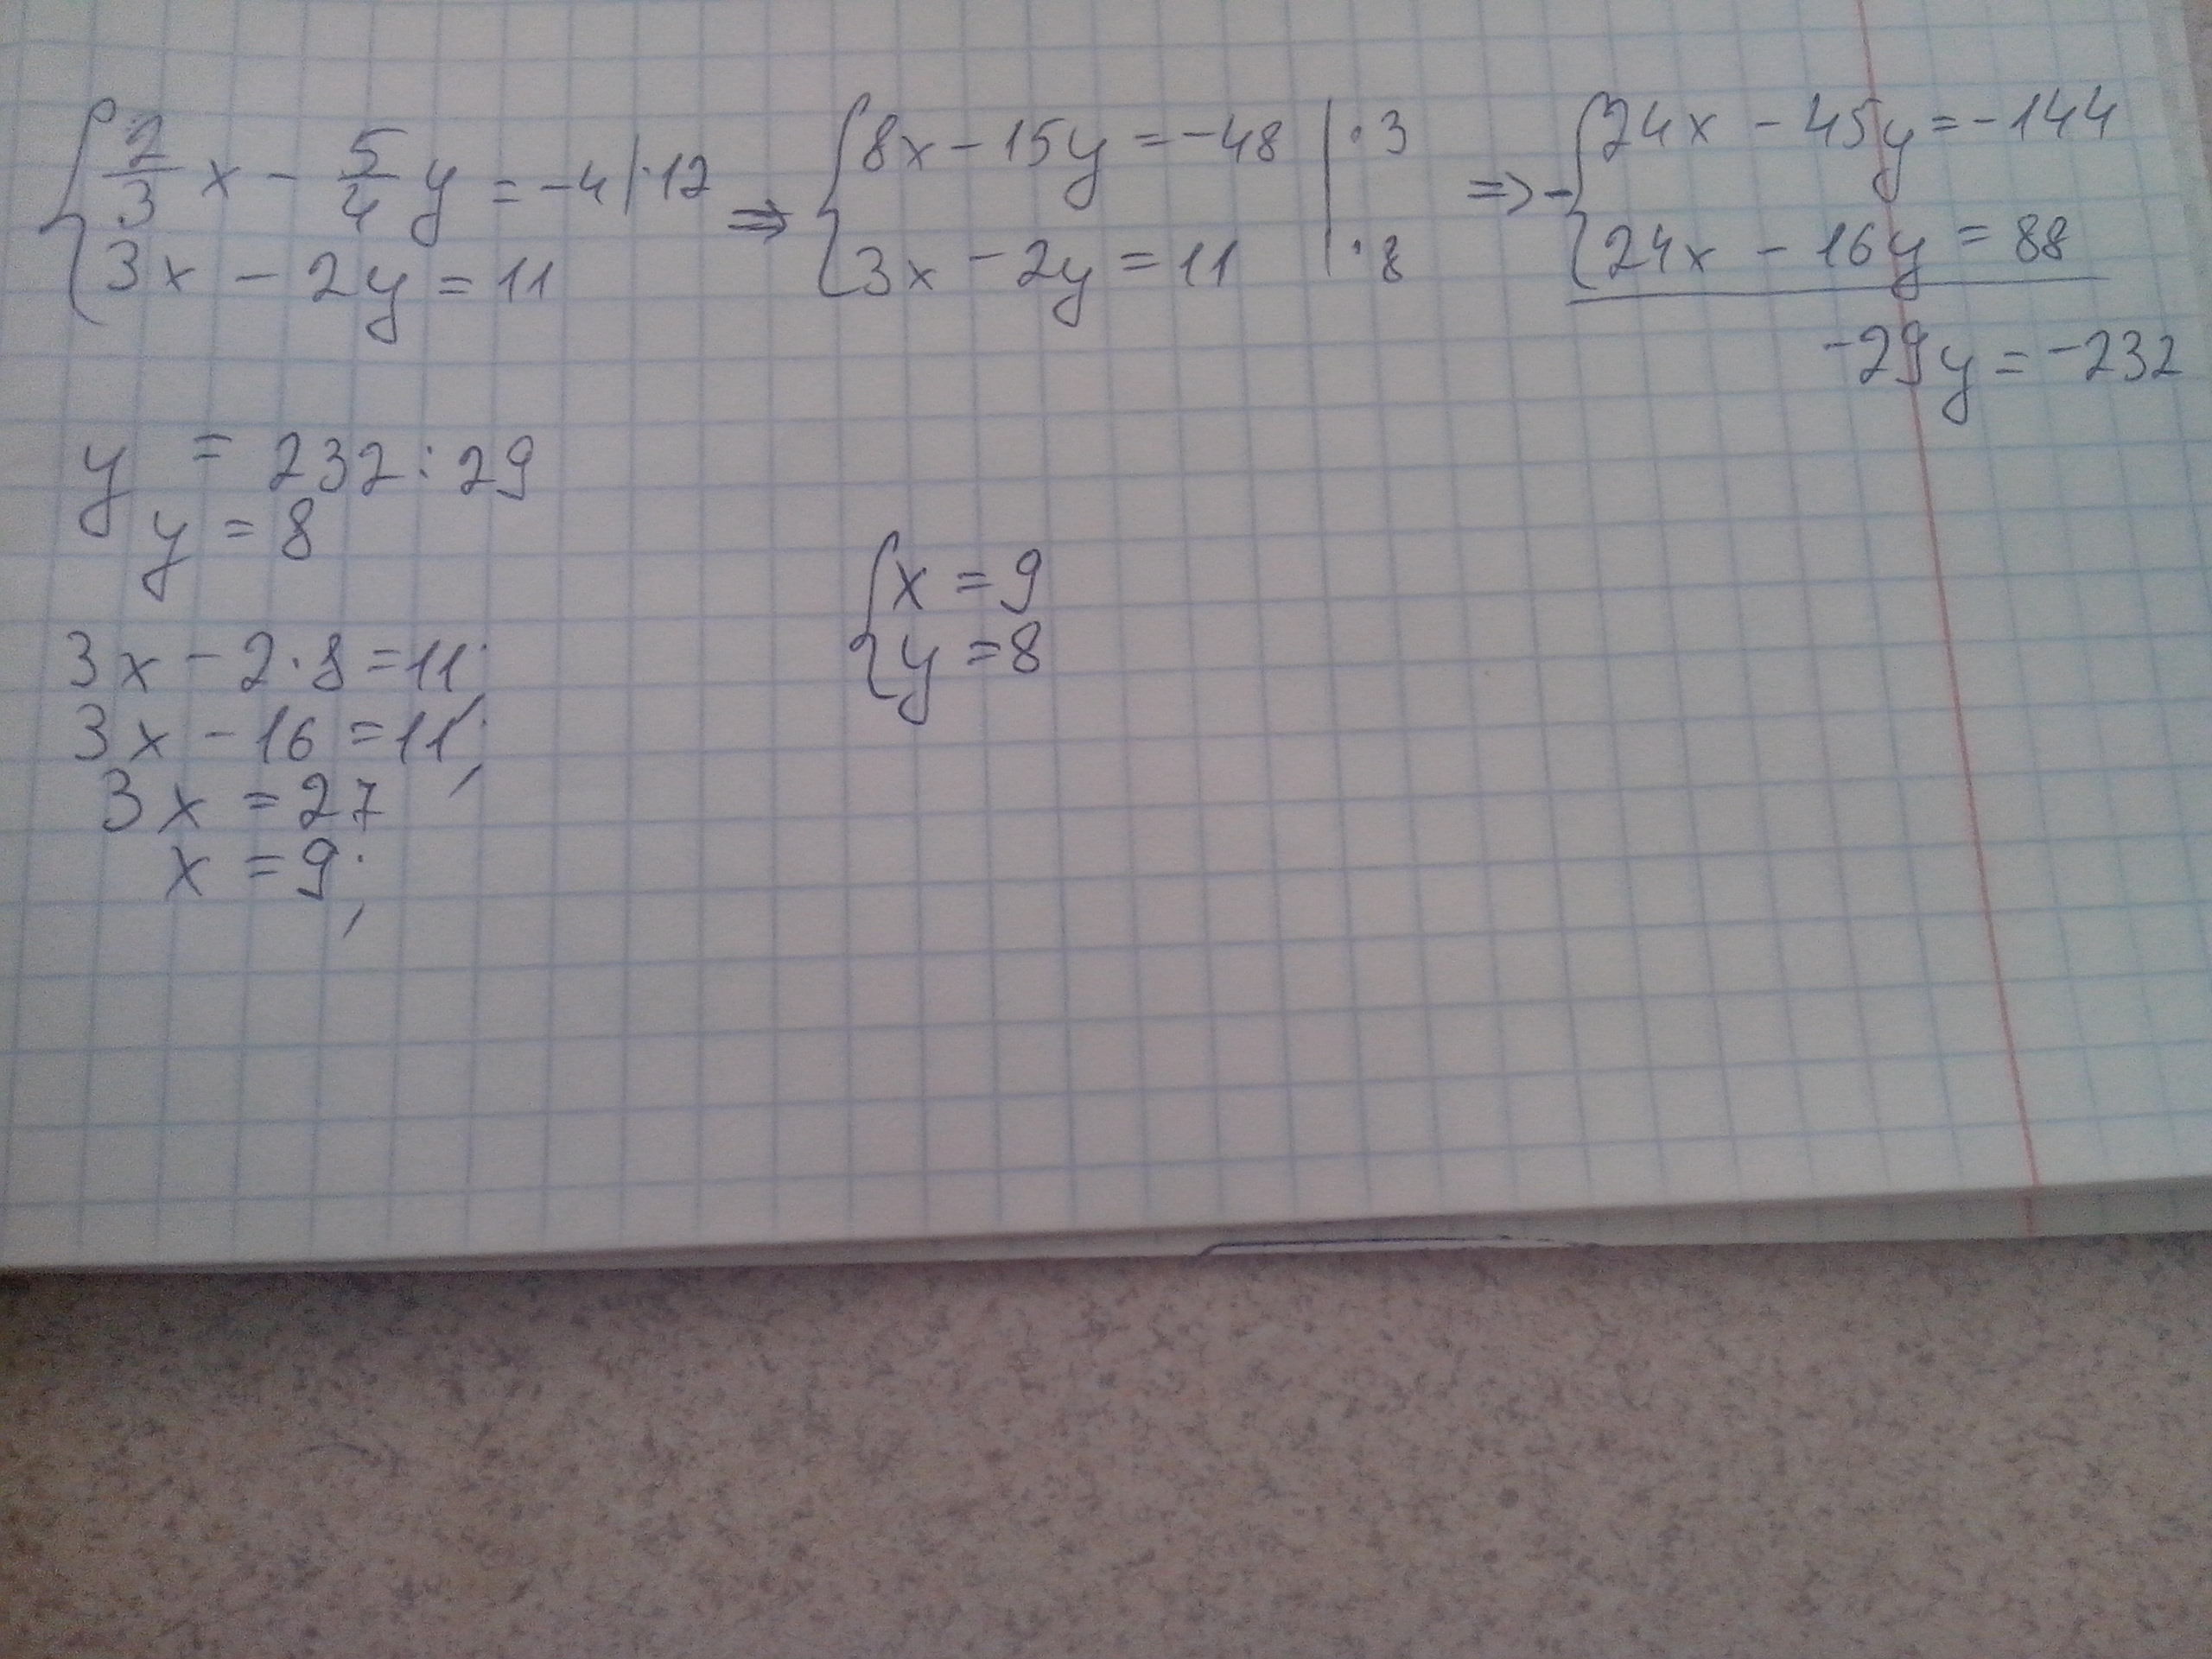 { 2/3 x - 5/4 y = -4 | ·12
3x - 2y = 11
=> { 8x - 15y = -48 | ·3
3x - 2y = 11 | ·8
=> - { 24x - 45y = -144
24x - 16y = 88
-29y = -232
y = 232 : 29
y = 8
3x - 2·8 = 11;
3x - 16 = 11;
3x = 27
x = 9;
{ x = 9
y = 8